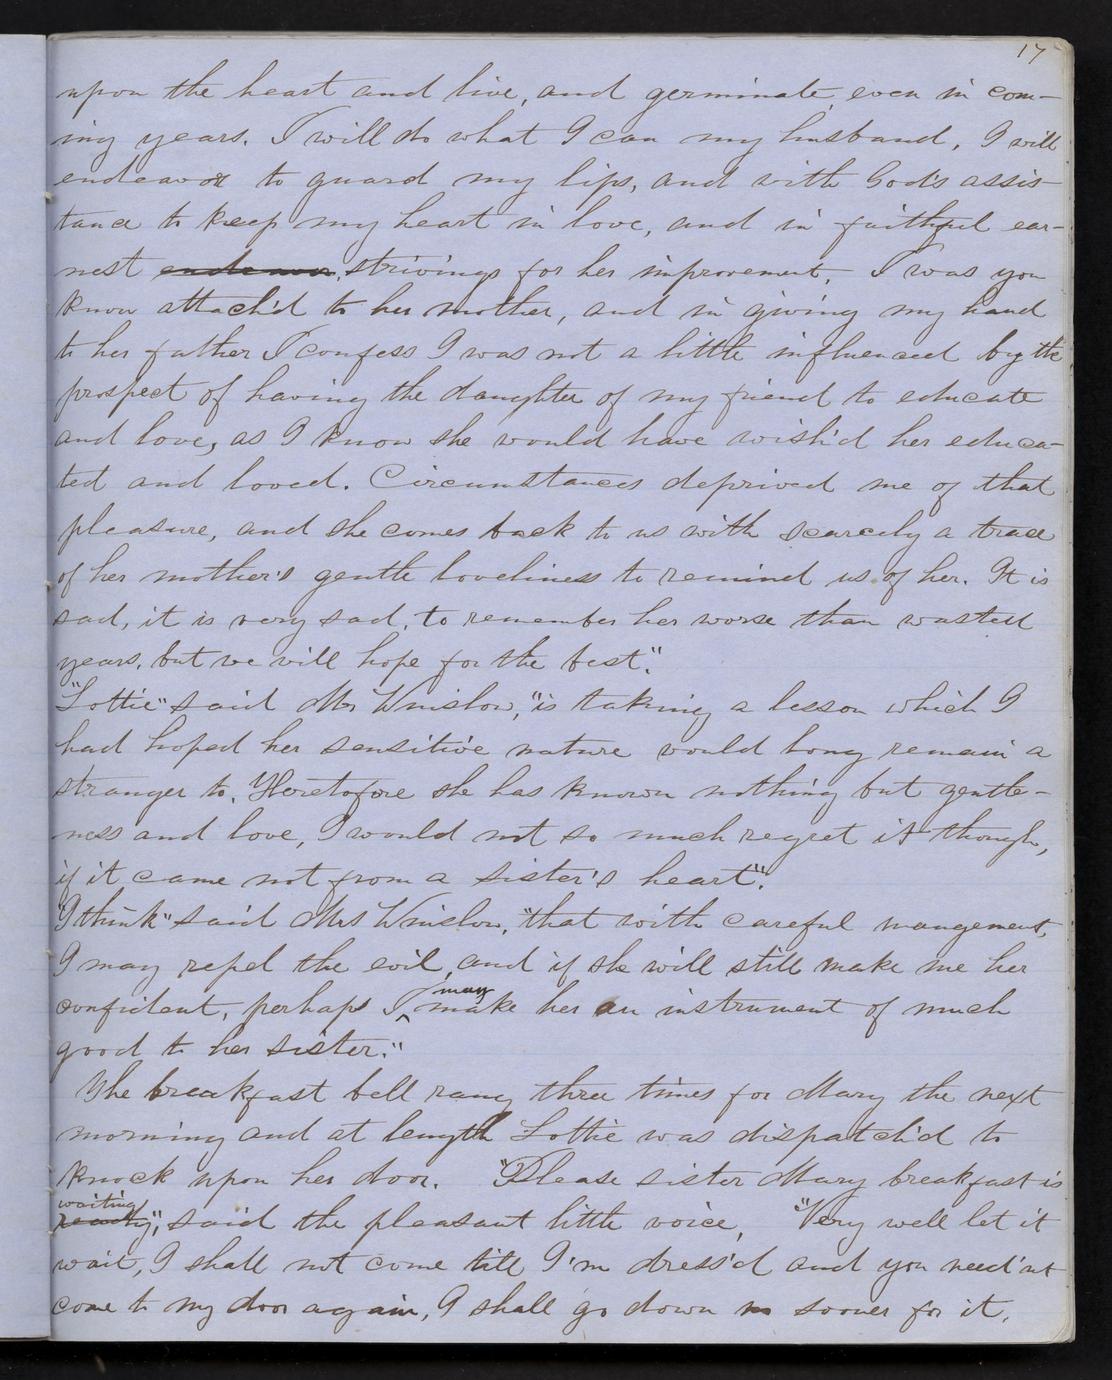 17
upon the heart and live, and germinate, even in com-
ing years. I will do what I can my husband, I will
endeavor to guard my lips, and with God's assis-
tance to keep my heart in love, and in faithful ear-
nest endeavor, strivings for her improvement, I was you
know attach'd to her mother, and in giving my hand
to her father I confess I was not a little influenced by the
prospect of having the daughter of my friend to educate
and love, as I know she would have wish'd her educa-
ted and loved. Circumstances deprived me of that
pleasure, and she comes back to us with scarcely a trace
of her mother's gentle loveliness to remind us of her. It is
sad, it is very sad, to remember her worse than wasted
years, but we will hope for the best."
"Lottie" said Mr Winslow, "is taking a lesson which I
had hoped her sensitive nature would long remain a
stranger to. Heretofore she has known nothing but gentle-
ness and love, I would not so much regret it though,
if it came not from a sister's heart".
"I think" said Mrs Winslow, "that with careful mangement,
I may repel the evil, and if she will still make me her
confident, perhaps I may make her an instrument of much
good to her sister."
The breakfast bell rang three times for Mary the next
morning and at length Lottie was dispatch'd to
knock upon her door. "Please sister Mary breakfast is
waiting
ready", said the pleasant little voice, "Very well let it
wait, I shall not come till I'm dress'd and you need'nt
come to my door again, I shall go down no sooner for it.